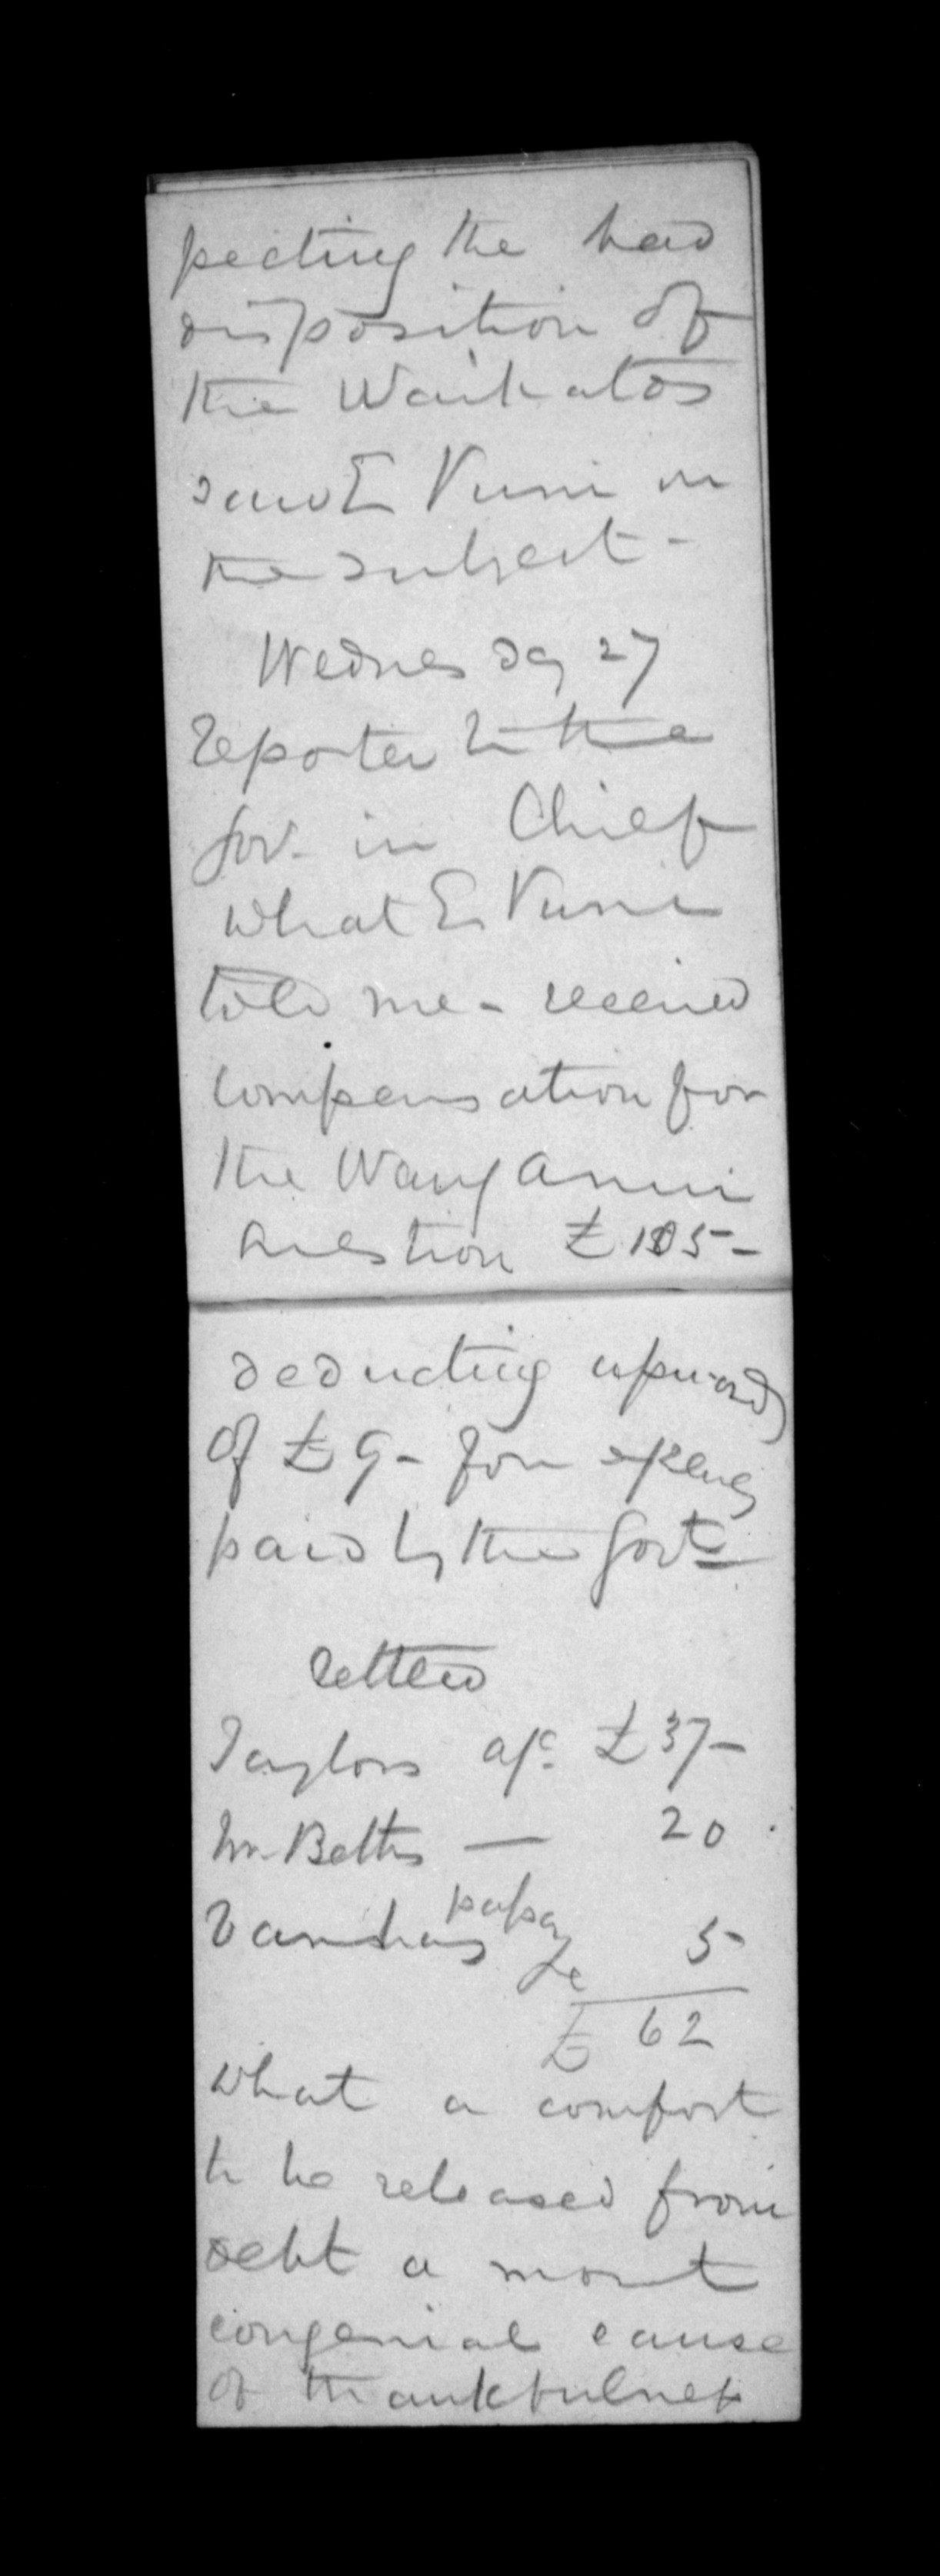 pecting the bad
disposition of
the Waikatos
saw E Puni on
the subject -
Wednesday 27
reported to the
Gov. in Chief
what E Puni
told me - received
compensation for
the Wanganui
question £185 -
deducting upwards
of £9 - for expenses
paid by the Govt
settled
Taylors a/c £37 -
Mr Betts — 20
paper
&c 5
£ 62
What a comfort
to be released from
debt a most
congenial cause
of thankfulness